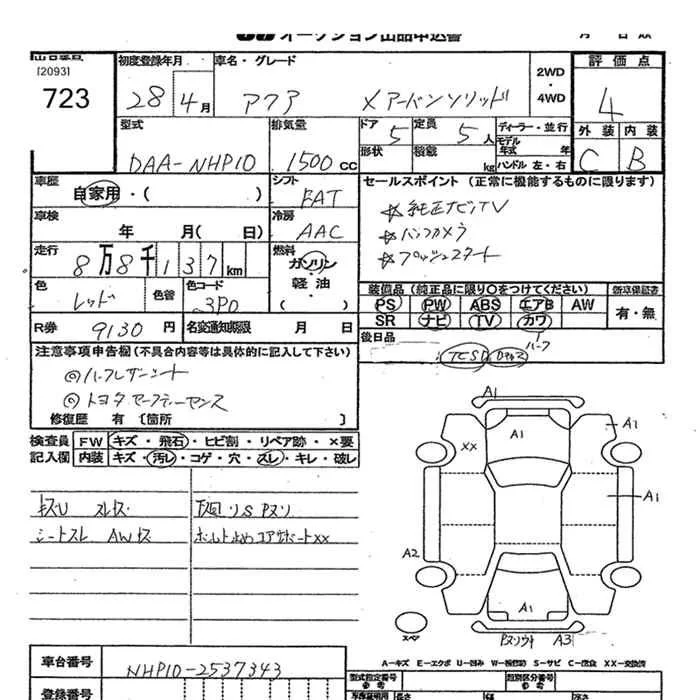 オークション出品申込書
[2093]
723
初度登録年月 28 4月
車名・グレード アクア Xアーバンソリッド
2WD・4WD
評価点 4
外装 C 内装 B
型式 DAA-NHP10
排気量 1500cc
ドア 5 定員 5人
形状 積載 kg
ディーラー・並行
モデル年式 年
ハンドル 左・右
車歴 自家用・( )
シフト FAT
セールスポイント(正常に機能するものに限ります)
☆純正ナビTV
☆バックカメラ
☆プッシュスタート
車検 年 月(日)
冷房 AAC
走行 8万8千137km
燃料 ガソリン・軽油 ( )
色 レッド 色替 色コード 3P0
装備品(純正品に限り○をつけてください) 新車保証書
PS PW ABS エアB AW 有・無
SR ナビ TV カワ
ハーフ
R券 9130円 名変通知期限 月 日
後日品
注意事項申告欄(不具合内容等は具体的に記入して下さい)
◎ハーフレザーシート
◎トヨタセーフティーセンス
修復歴 有〔箇所 〕
検査員記入欄 FW キズ・飛石・ヒビ割・リペア跡・×要
内装 キズ・汚レ・コゲ・穴・スレ・キレ・破レ
キズU スレキズ
シートスレ AWキズ
下廻リS Pヌリ
ボルト止めコアサポートXX
A1
A1
XX
A1
A1
A2
A1
スペア
A3
A-キズ E-エクボ U-凹み W-補修跡 S-サビ C-腐食 XX-交換済
車台番号 NHP10-2537343
型式指定番号
類別区分番号
登録番号
長さ
幅
高さ